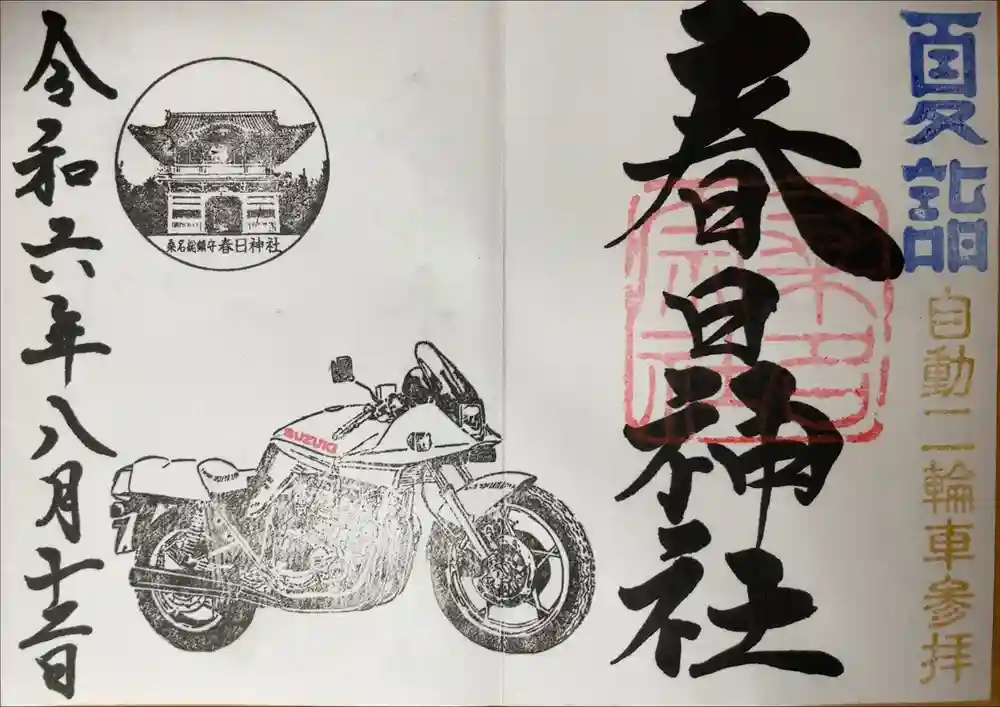 夏詣
自動二輪車参拝
春日神社
桑名
宗社
桑名総鎮守 春日神社
SUZUKI
令和六年八月十二日